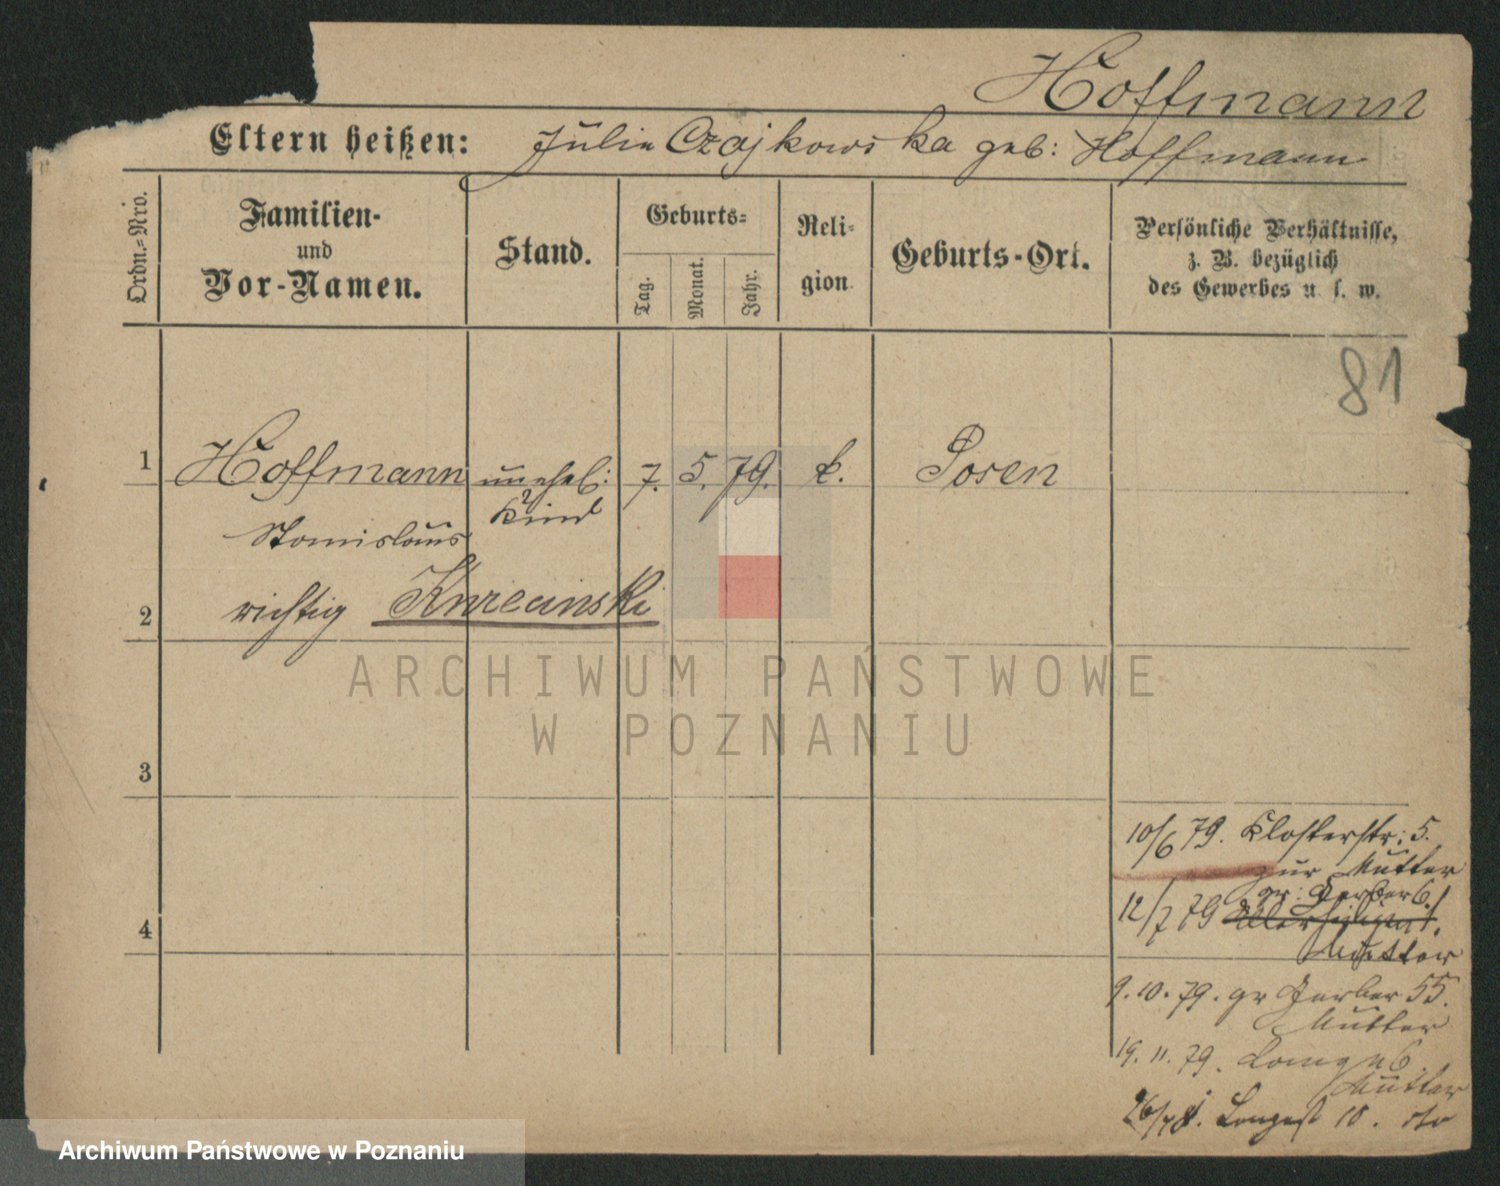 Hoffmann
Eltern heißen: Julie Czajkowska geb: Hoffmann
Ordn.=Nro.
Familien-
und
Vor-Namen.
Stand.
Geburts=
Tag.
Monat.
Jahr.
Reli-
gion
Geburts-Ort.
Persönliche Verhältnisse,
z. B. bezüglich
des Gewerbes u. s. w.
81
1 Hoffmann unehel: 7. 5. 79. k. Posen
Stanislaus Kind
2 richtig
3
4
10/6 79. Klosterstr: 5.
zur Mutter
gr: Gerber 6.
12/7 79
Mutter
9. 10. 79. gr Gerber 55.
Mutter
19. 11. 79.
Mutter
10. dto
ARCHIWUM PAŃSTWOWE
W POZNANIU
Archiwum Państwowe w Poznaniu